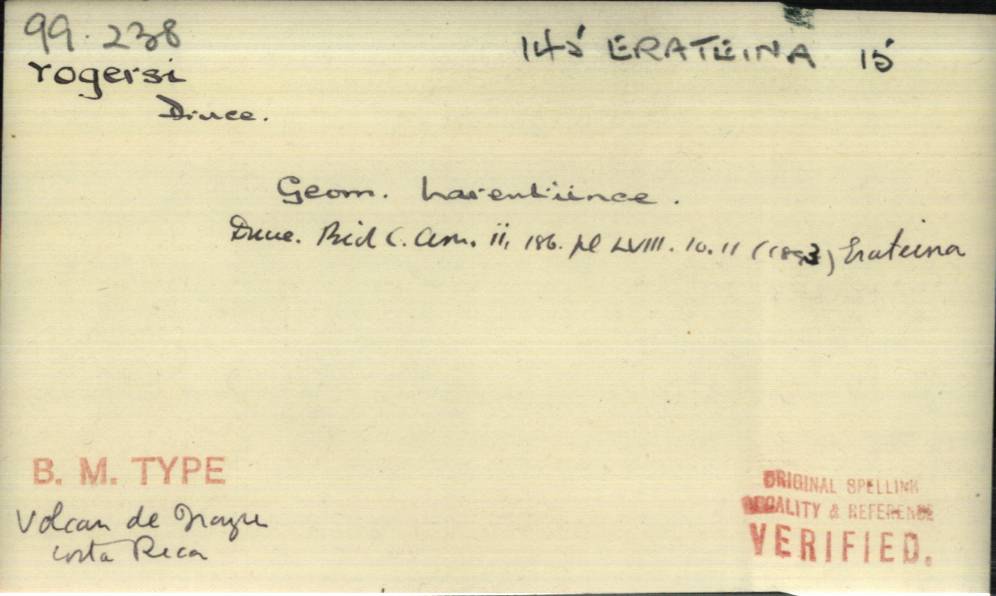 99.238
145 ERATEINA 15
rogersi
Druce.
Geom. Larentiinae.
Druce. Biol C. Am. ii, 186. pl LVIII. 10. 11 (1893) Erateina
B. M. TYPE
Volcan de Irazu
Costa Rica
ORIGINAL SPELLING
LOCALITY & REFERENCE
VERIFIED.